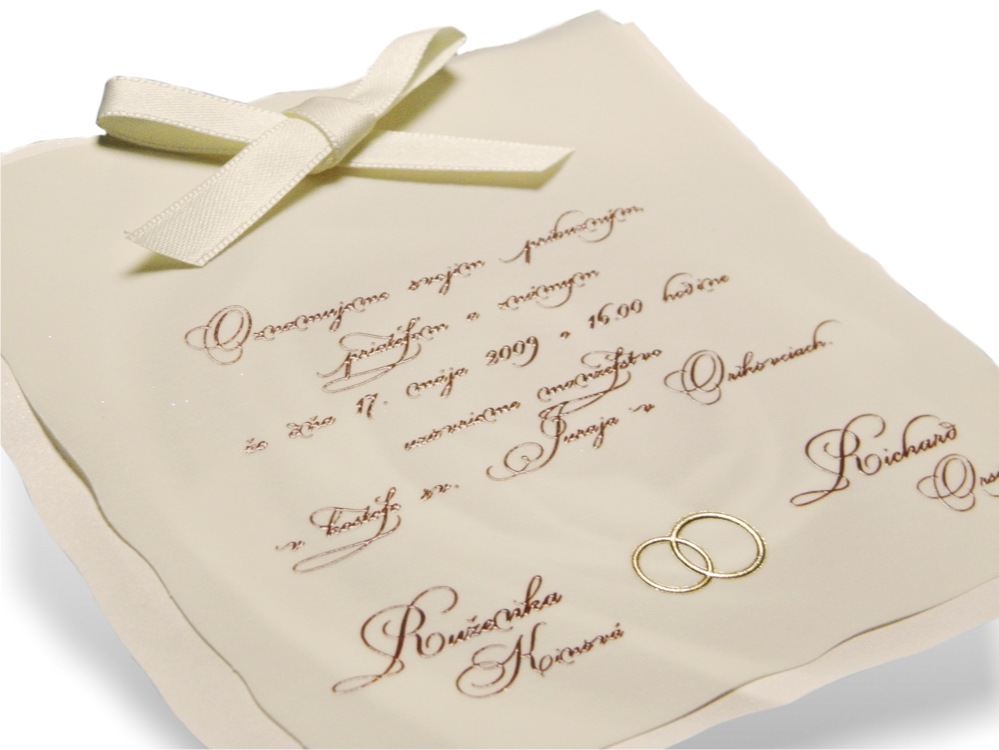 Oznamujeme svojim príbuzným,
priateľom a známym
že dňa 17. mája 2009 o 16.00 hodine
uzavrieme manželstvo
v kostole sv. Juraja v Orihovciach.
Richard
Ruženka
Kinová